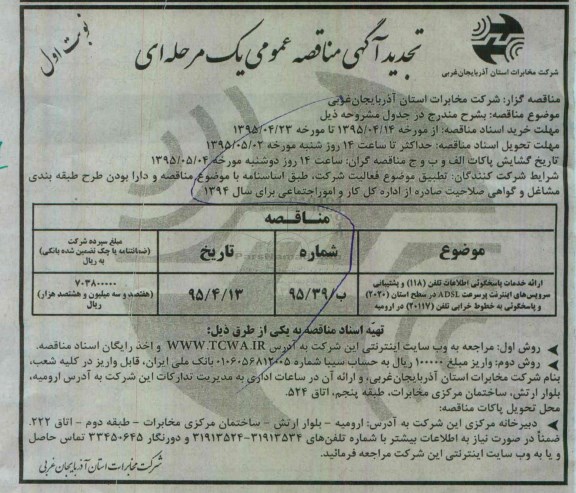 نوبت اول
تجدید آگهی مناقصه عمومی یک مرحله ای
شرکت مخابرات استان آذربایجان‌غربی
مناقصه گزار: شرکت مخابرات استان آذربایجان‌غربی
موضوع مناقصه: بشرح مندرج در جدول مشروحه ذیل
مهلت خرید اسناد مناقصه: از مورخه ۱۳۹۵/۰۴/۱۴ تا مورخه ۱۳۹۵/۰۴/۲۳
مهلت تحویل اسناد مناقصه: حداکثر تا ساعت ۱۴ روز شنبه مورخه ۱۳۹۵/۰۵/۰۲
تاریخ گشایش پاکات الف و ب و ج مناقصه گران: ساعت ۱۴ روز دوشنبه مورخه ۱۳۹۵/۰۵/۰۴
شرایط شرکت کنندگان: تطبیق موضوع فعالیت شرکت، طبق اساسنامه با موضوع مناقصه و دارا بودن طرح طبقه بندی
مشاغل و گواهی صلاحیت صادره از اداره کل کار و اموراجتماعی برای سال ۱۳۹۴
مناقصه
موضوع
شماره
تاریخ
مبلغ سپرده شرکت
(ضمانتنامه یا چک تضمین شده بانکی)
به ریال
ارائه خدمات پاسخگوئی اطلاعات تلفن (۱۱۸) و پشتیبانی
سرویس‌های اینترنت پرسرعت ADSL در سطح استان (۲۰۲۰)
و پاسخگوئی به خطوط خرابی تلفن (۲۰۱۱۷) در ارومیه
۹۵/۳۹/ب
۹۵/۴/۱۳
۷۰۳۸۰۰۰۰۰
(هفتصد و سه میلیون و هشتصد هزار)
ریال
تهیه اسناد مناقصه به یکی از طرق ذیل:
روش اول: مراجعه به وب سایت اینترنتی این شرکت به آدرس WWW.TCWA.IR و اخذ رایگان اسناد مناقصه.
روش دوم: واریز مبلغ ۱۰۰۰۰۰ ریال به حساب سیبا شماره ۰۱۰۶۰۵۶۸۱۲۰۰۵ بانک ملی ایران، قابل واریز در کلیه شعب،
بنام شرکت مخابرات استان آذربایجان‌غربی، و ارائه آن در ساعات اداری به مدیریت تدارکات این شرکت به آدرس ارومیه،
بلوار ارتش، ساختمان مرکزی مخابرات، طبقه پنجم، اتاق ۵۲۴.
محل تحویل پاکات مناقصه:
دبیرخانه مرکزی این شرکت به آدرس: ارومیه - بلوار ارتش - ساختمان مرکزی مخابرات - طبقه دوم - اتاق ۲۲۲.
ضمناً در صورت نیاز به اطلاعات بیشتر با شماره تلفن‌های ۳۱۹۱۳۵۳۴-۳۱۹۱۳۵۲۴ و دورنگار ۳۳۴۵۰۶۴۵ تماس حاصل
و یا به وب سایت اینترنتی این شرکت مراجعه فرمائید.
شرکت مخابرات استان آذربایجان غربی